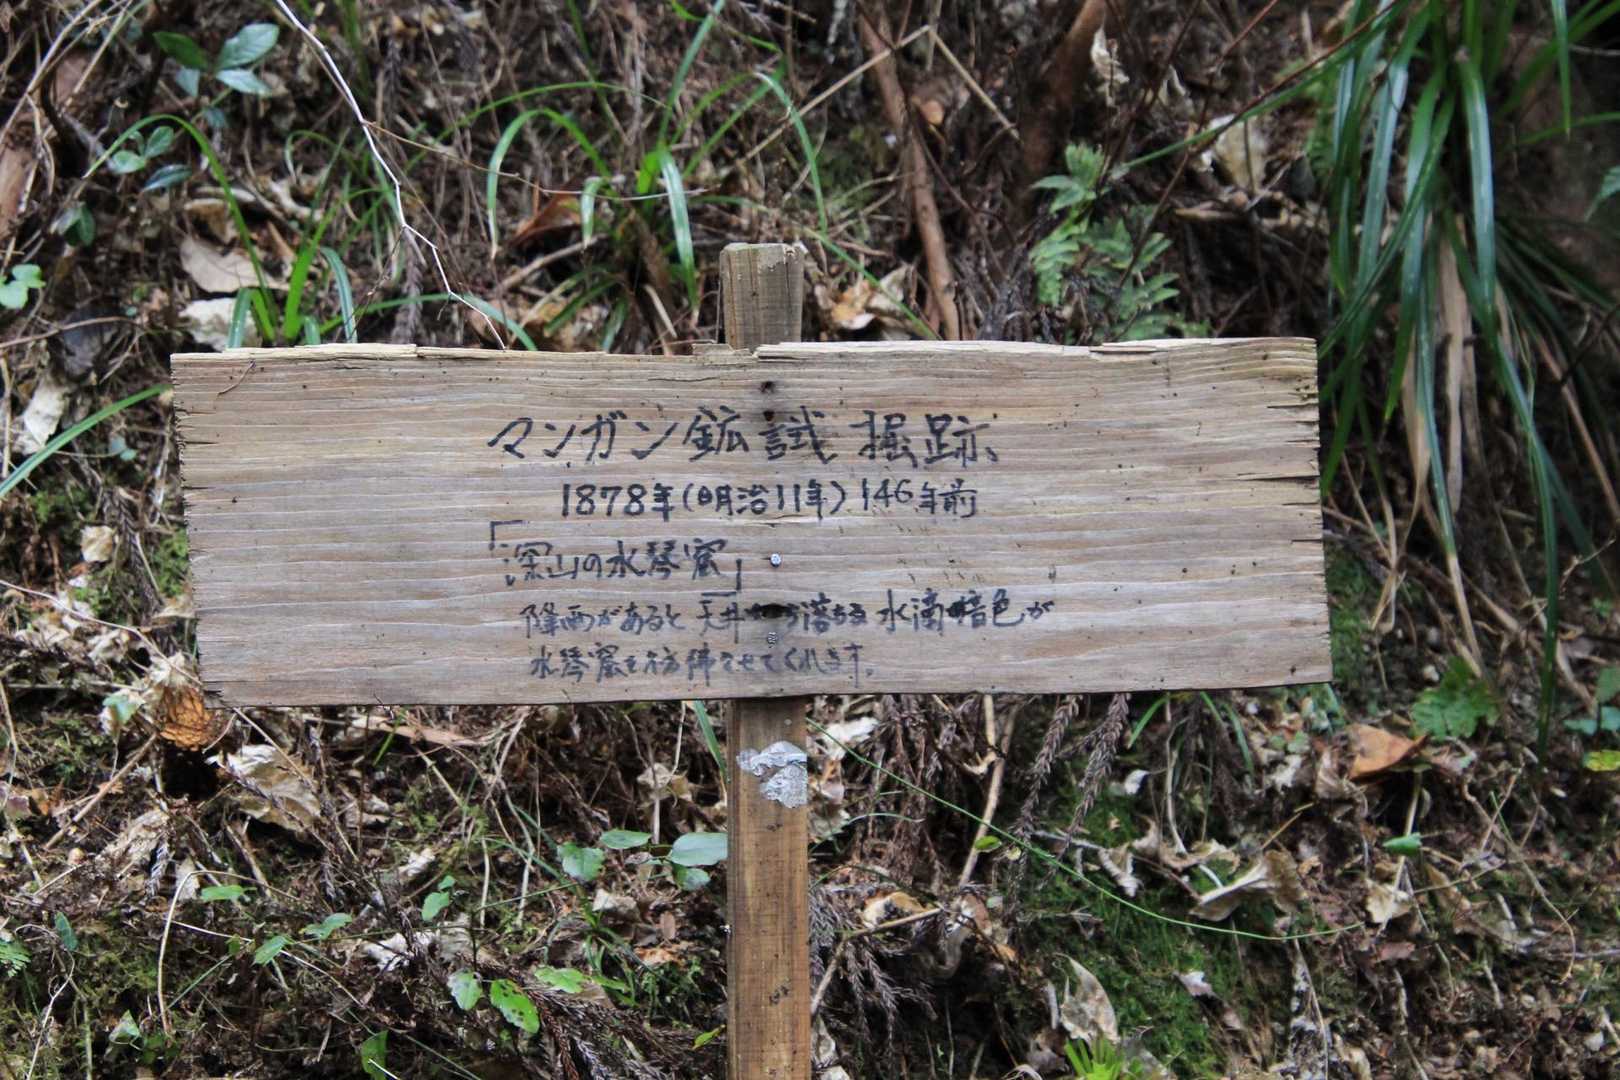 マンガン鉱試掘跡
1878年(明治11年)146年前
「深山の水琴窟」
降雨があると天井から落ちる水滴暗色が
水琴窟を彷彿させてくれます。